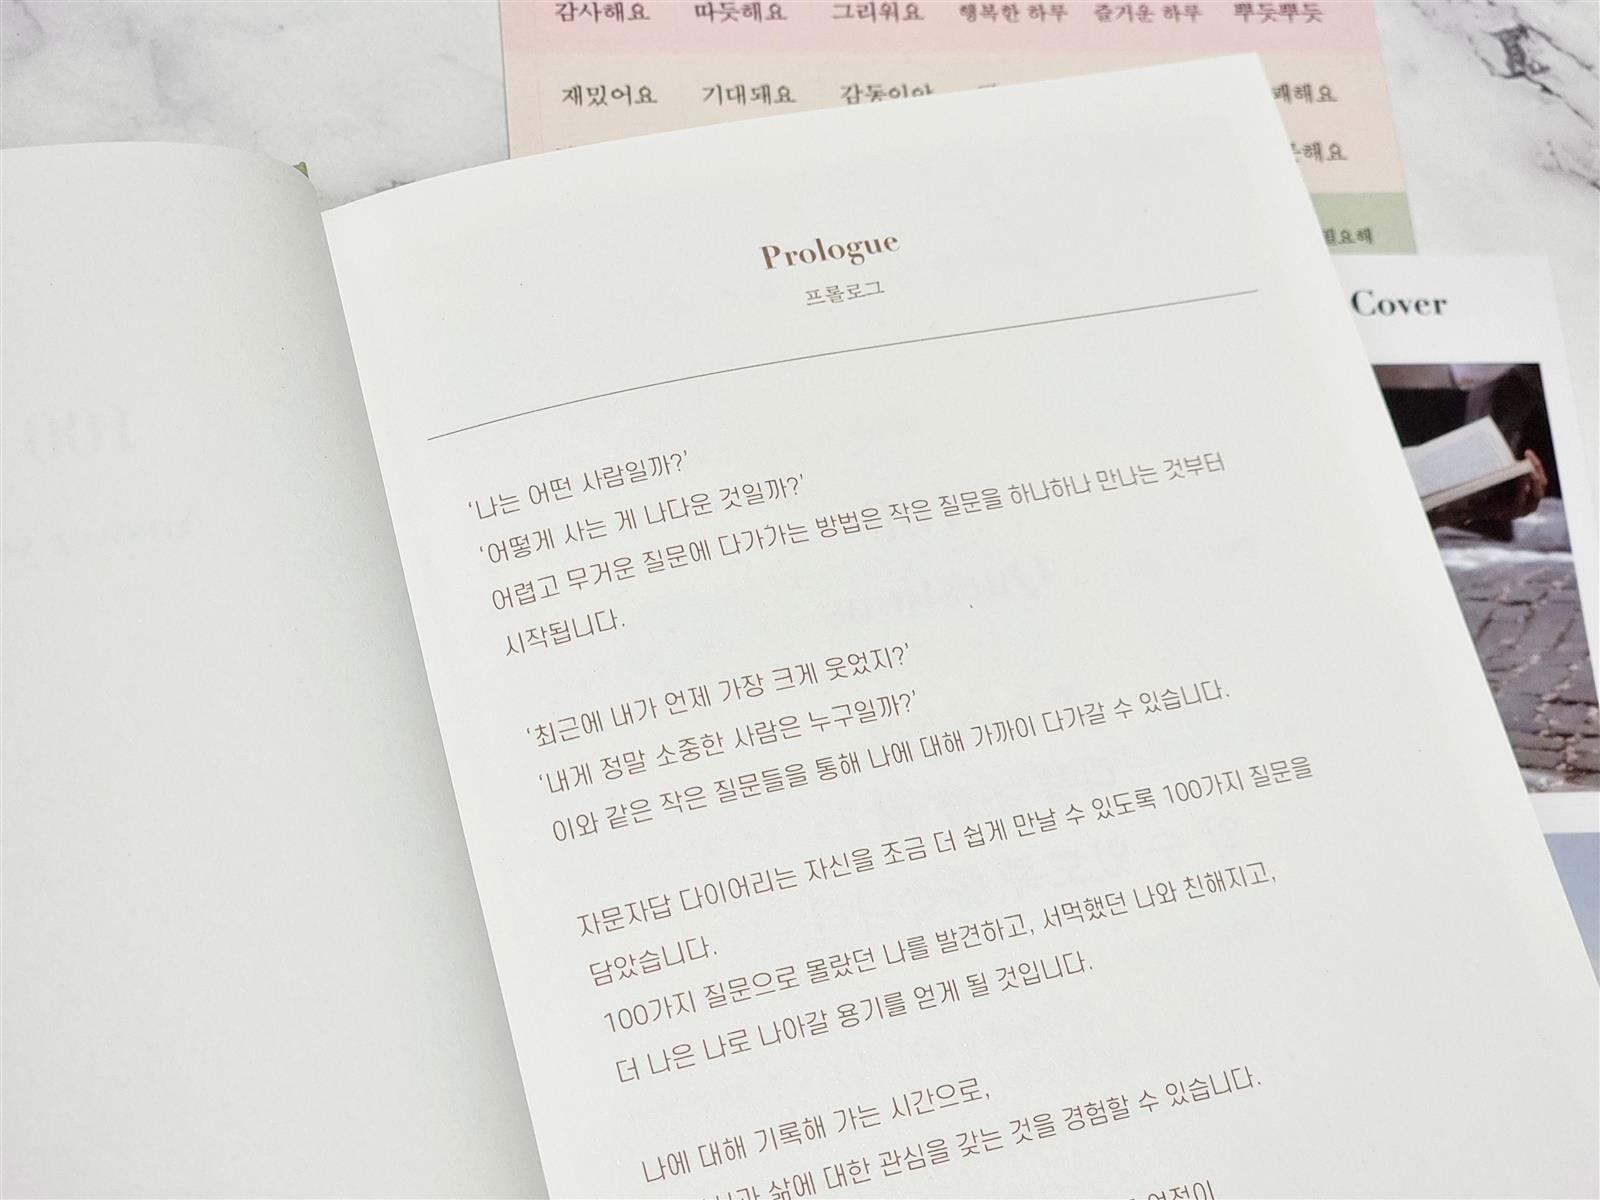 감사해요 따듯해요 그리워요 행복한 하루 즐거운 하루 뿌듯뿌듯
재밌어요 기대돼요
Cover
Prologue
프롤로그
‘나는 어떤 사람일까?’
‘어떻게 사는 게 나다운 것일까?’
어렵고 무거운 질문에 다가가는 방법은 작은 질문을 하나하나 만나는 것부터
시작됩니다.
‘최근에 내가 언제 가장 크게 웃었지?’
‘내게 정말 소중한 사람은 누구일까?’
이와 같은 작은 질문들을 통해 나에 대해 가까이 다가갈 수 있습니다.
자문자답 다이어리는 자신을 조금 더 쉽게 만날 수 있도록 100가지 질문을
담았습니다.
100가지 질문으로 몰랐던 나를 발견하고, 서먹했던 나와 친해지고,
더 나은 나로 나아갈 용기를 얻게 될 것입니다.
나에 대해 기록해 가는 시간으로,
삶에 대한 관심을 갖는 것을 경험할 수 있습니다.